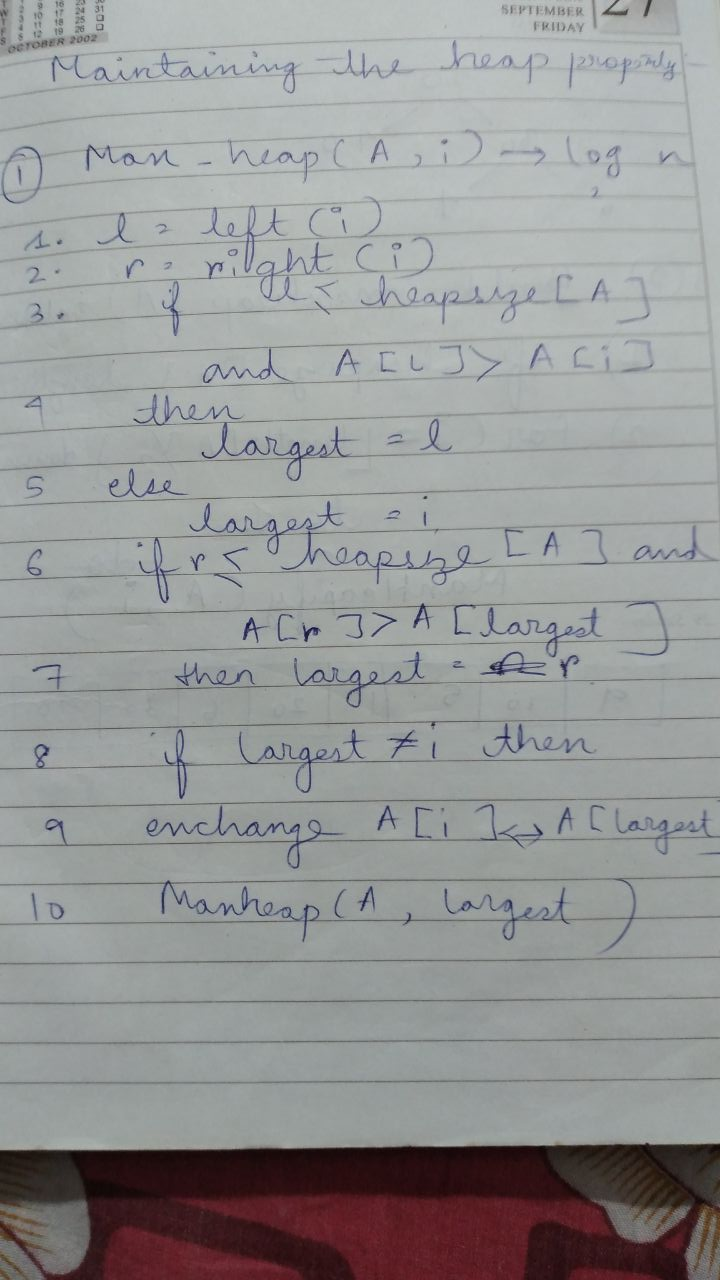 OCTOBER 2002
SEPTEMBER 27
FRIDAY
Maintaining the heap property
① Max-heap(A, i) → log n
1. l = left(i)
2. r = right(i)
3. if l ≤ heapsize[A]
and A[L] > A[i]
4 then
largest = l
5 else
largest = i
6 if r ≤ heapsize[A] and
A[r] > A[largest]
7 then largest = r
8 if largest ≠ i then
9 exchange A[i] ↔ A[largest
10 Maxheap(A, largest)